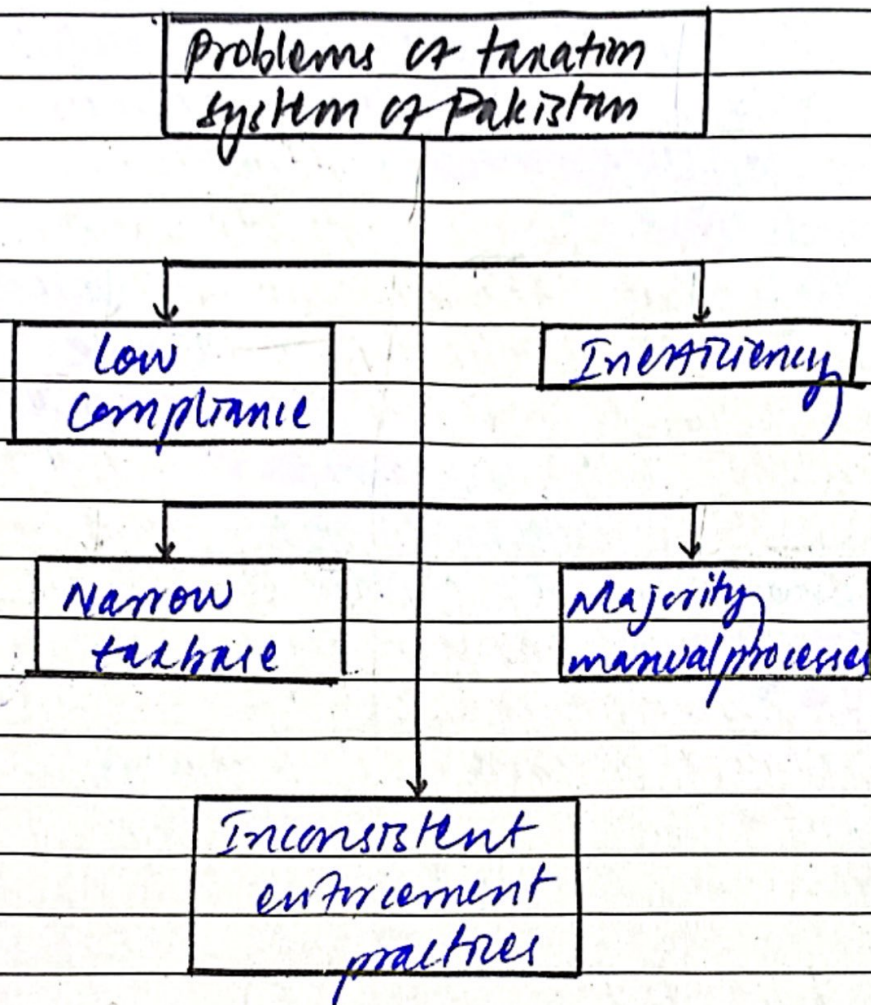 Problems of taxation
system of Pakistan
Low
Compliance
Inefficiency
Narrow
taxbase
Majority
manual processes
Inconsistent
enforcement
practices